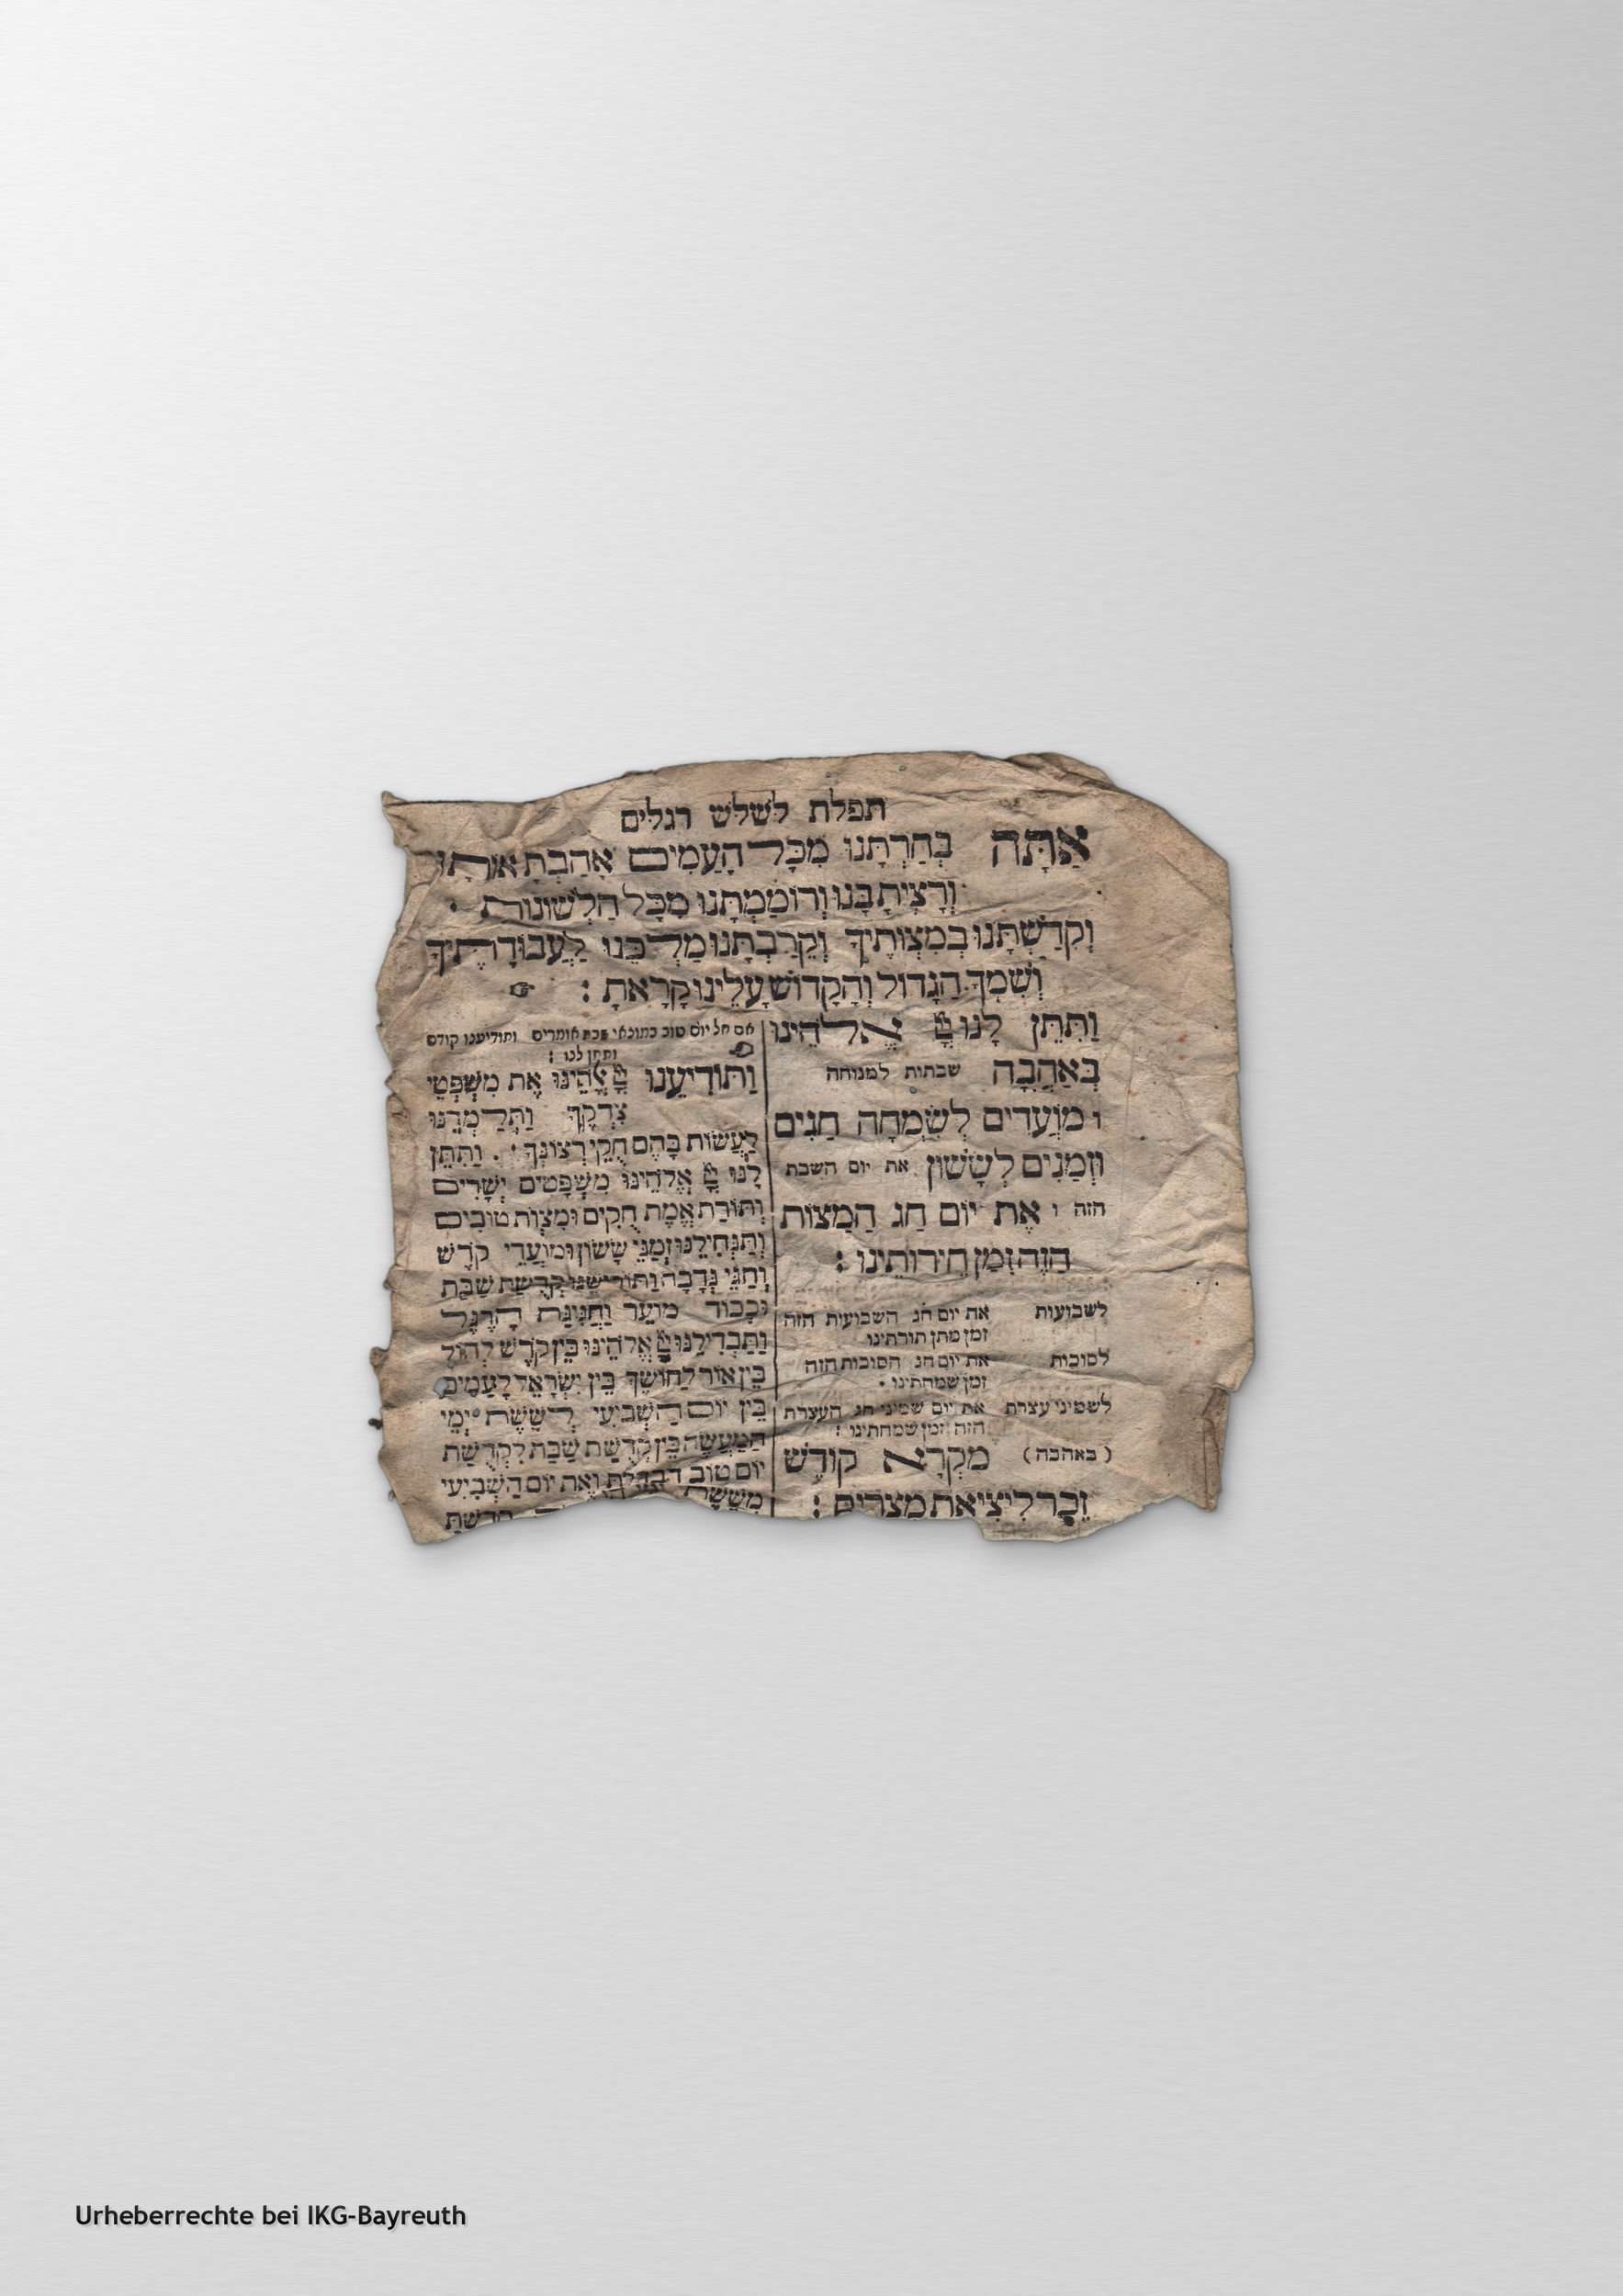 תפלת לשלש רגלים
אַתָּה בְּחַרְתָּנוּ מִכָּל הָעַמִים אָהַבְתָּ אוֹתָנוּ
וְרָצִיתָ בָּנוּ וְרוֹמַמְתָּנוּ מִכָּל הַלְשׁוֹנוֹת ·
וְקִדַּשְׁתָּנוּ בְּמִצְוֹתֶיךָ וְקֵרַבְתָּנוּ מַלְכֵּנוּ לַעֲבוֹדָתֶיךָ
וְשִׁמְךָ הַגָּדוֹל וְהַקָּדוֹשׁ עָלֵינוּ קָרָאתָ :
וַתִּתֶּן לָנוּ יְיָ אֱלֹהֵינוּ
בְּאַהֲבָה שבתות למנוחה
ו מוֹעֲדִים לְשִׂמְחָה חַגִּים
וּזְמַנִּים לְשָׂשׂוֹן את יום השבת
הזה ו אֶת יוֹם חַג הַמַצוֹת
הַזֶּה זְמַן חֵירוּתֵינוּ :
לשבועות את יום חג השבועות הזה
זמן מתן תורתינו
לסוכות את יום חג הסוכות הזה
זמן שמחתינו ·
לשמיני עצרת את יום שמיני חג העצרת
הזה זמן שמחתינו :
(באהבה) מִקְרָא קוֹדֶשׁ
זֵכֶר לִיצִיאַת מִצְרַיִם :
אם חל יום טוב במוצאי שבת אומרים ותודיענו קודם
ותתן לנו :
וַתּוֹדִיעֵנוּ יְיָ אֱלֹהֵינוּ אֶת מִשְׁפְּטֵי
צִדְקֶךָ וַתְּלַמְּדֵנוּ
לַעֲשׂוֹת בָּהֶם חֻקֵּי רְצוֹנֶךָ : וַתִּתֶּן
לָנוּ יְיָ אֱלֹהֵינוּ מִשְׁפָּטִים יְשָׁרִים
וְתוֹרַת אֱמֶת חֻקִּים וּמִצְוֹת טוֹבִים
וַתַּנְחִילֵנוּ זְמַנֵּי שָׂשׂוֹן וּמוֹעֲדֵי קֹדֶשׁ
וְחַגֵּי נְדָבָה וַתּוֹרִישֵׁנוּ קְדֻשַּׁת שַׁבָּת
וּכְבוֹד מוֹעֵד וַחֲגִיגַת הָרֶגֶל
וַתַּבְדִילֵנוּ יְיָ אֱלֹהֵינוּ בֵּין קֹדֶשׁ לְחוֹל
בֵּין אוֹר לַחוֹשֶׁךְ בֵּין יִשְׂרָאֵל לָעַמִּים
בֵּין יוֹם הַשְּׁבִיעִי לְשֵׁשֶׁת יְמֵי
הַמַּעֲשֶׂה בֵּין קְדֻשַּׁת שַׁבָּת לִקְדֻשַּׁת
יוֹם טוֹב הִבְדַּלְתָּ וְאֶת יוֹם הַשְּׁבִיעִי
מִשֵּׁשֶׁת
Urheberrechte bei IKG-Bayreuth